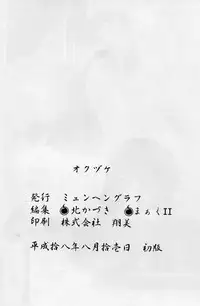 オクヅケ
発行 ミュンヘングラフ
編集 ●北かづき ●まぁくII
印刷 株式会社 翔美
平成拾八年八月拾壱日 初版